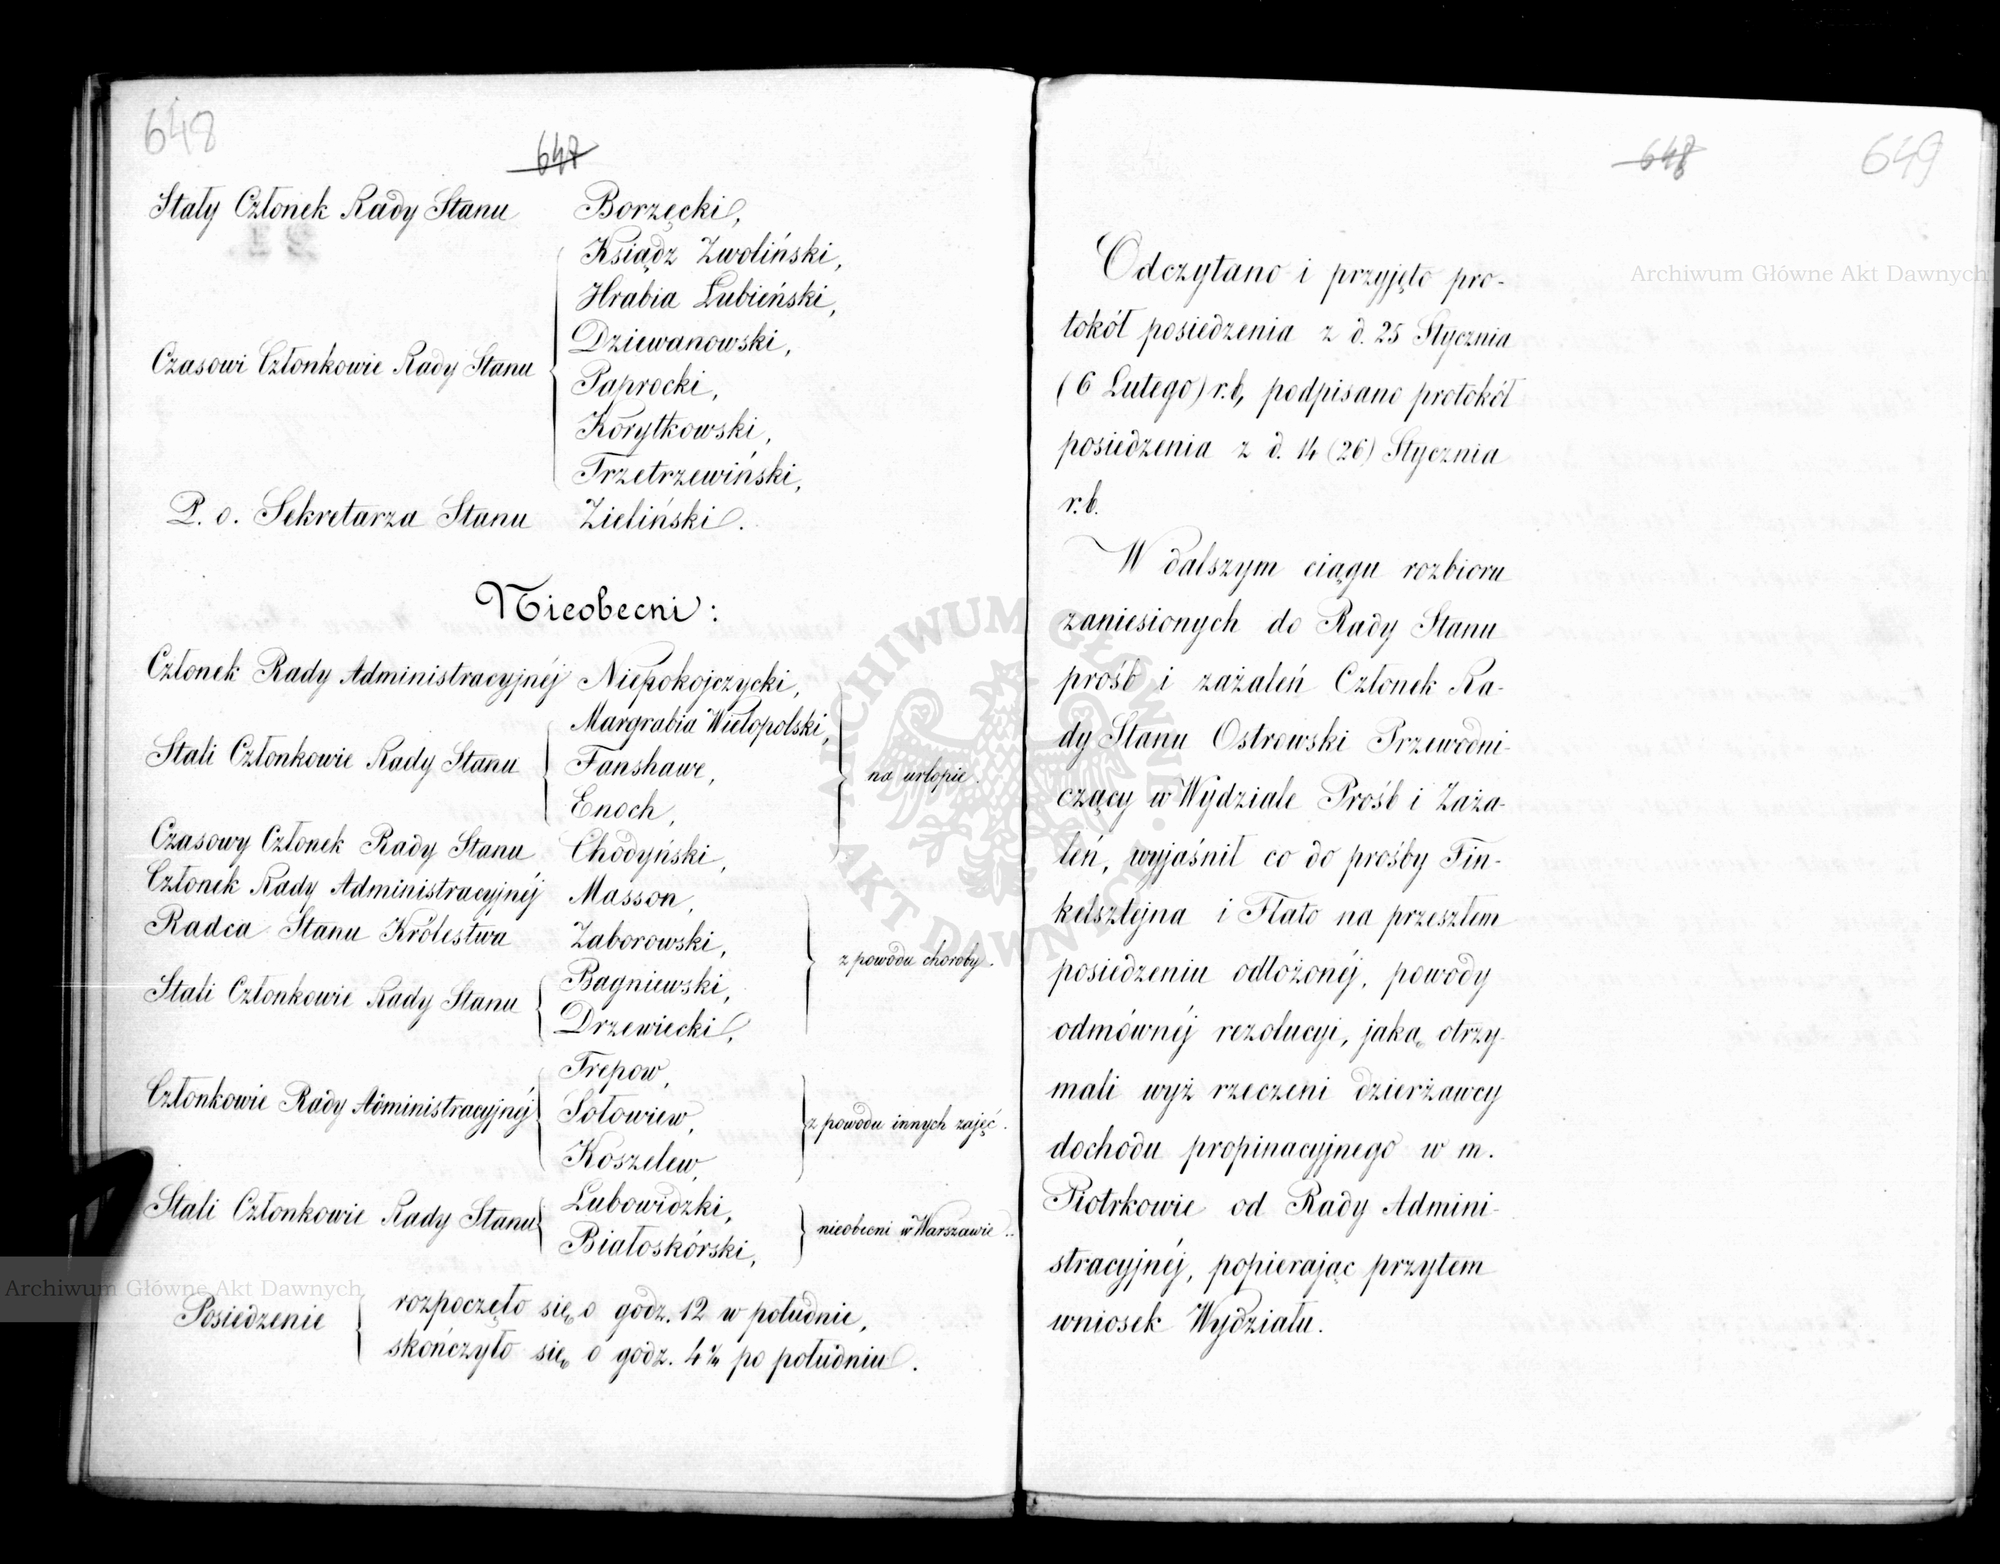 648
647
Stały Członek Rady Stanu Borzęcki,
Czasowi Członkowie Rady Stanu
Ksiądz Zwoliński,
Hrabia Łubieński,
Dziewanowski,
Paprocki,
Korytkowski,
Trzetrzewiński,
P. o. Sekretarza Stanu Zieliński.
Nieobecni:
Członek Rady Administracyjnéj Niepokojczycki,
Stali Członkowie Rady Stanu
Margrabia Wielopolski,
Fanshawe,
Enoch,
Czasowy Członek Rady Stanu Chodyński,
na urlopie.
Członek Rady Administracyjnéj Masson,
Radca Stanu Królestwa Zaborowski,
Stali Członkowie Rady Stanu
Bagniewski,
Drzewiecki,
z powodu choroby.
Członkowie Rady Administracyjnéj
Trepow,
Sołowiew,
Koszelew,
z powodu innych zajęć.
Stali Członkowie Rady Stanu
Lubowidzki,
Białoskórski,
nieobecni w Warszawie.
Posiedzenie
rozpoczęło się o godz. 12 w południe,
skończyło się o godz. 4 po południu.
648
649
Odczytano i przyjęto pro-
tokół posiedzenia z d. 25 Stycznia
(6 Lutego) r.b., podpisano protokół
posiedzenia z d. 14 (26) Stycznia
r.b.
W dalszym ciągu rozbioru
zaniesionych do Rady Stanu
próśb i zażaleń Członek Ra-
dy Stanu Ostrowski Przewodni-
czący w Wydziale Próśb i Zaża-
leń, wyjaśnił co do prośby Fin-
kelsztejna i Flato na przeszłem
posiedzeniu odłożonéj, powody
odmównéj rezolucyi, jaką otrzy-
mali wyż rzeczeni dzierżawcy
dochodu propinacyjnego w m.
Piotrkowie od Rady Admini-
stracyjnéj, popierając przytem
wniosek Wydziału.
Archiwum Główne Akt Dawnych
Archiwum Główne Akt Dawnych
ARCHIWUM GŁÓWNE AKT DAWNYCH